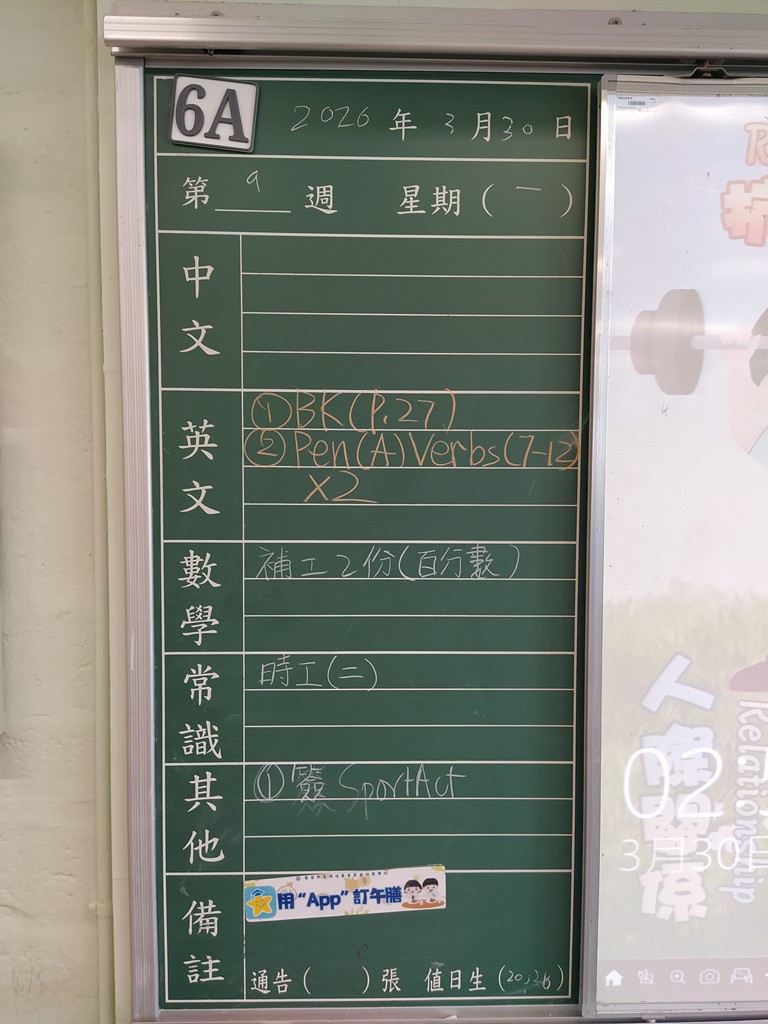 6A
2026 年 3 月 30 日
第 9 週 星期 ( 一 )
中文
英文
① BK (P.27)
② Pen (A) Verbs (7-12)
x2
數學
補工2份(百分數)
常識
時工(二)
其他
① 簽 SportAct
備註
用“App”訂午膳
通告 ( ) 張 值日生 (20,26)
人際關係
Relationship
02
3月30日